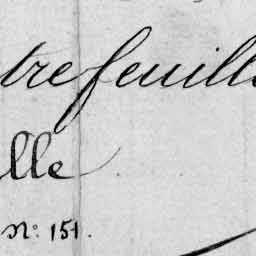 trefeuill
lle
N: 151.